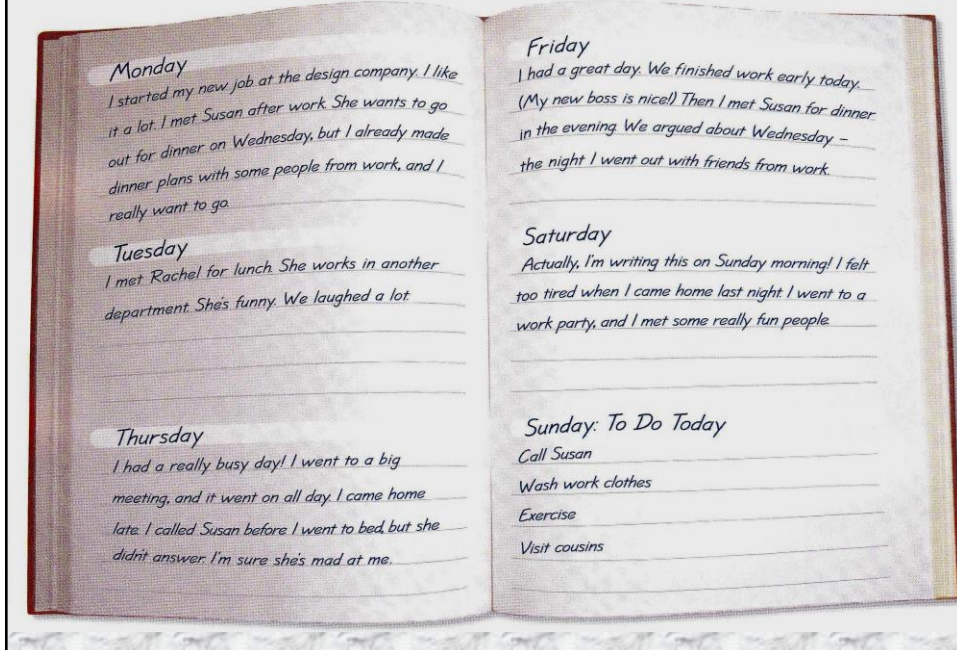 Monday
I started my new job at the design company. I like
it a lot. I met Susan after work. She wants to go
out for dinner on Wednesday, but I already made
dinner plans with some people from work, and I
really want to go.
Tuesday
I met Rachel for lunch. She works in another
department. She's funny. We laughed a lot.
Thursday
I had a really busy day! I went to a big
meeting, and it went on all day. I came home
late. I called Susan before I went to bed, but she
didn't answer. I'm sure she's mad at me.
Friday
I had a great day. We finished work early today.
(My new boss is nice!) Then I met Susan for dinner
in the evening. We argued about Wednesday –
the night I went out with friends from work.
Saturday
Actually, I'm writing this on Sunday morning! I felt
too tired when I came home last night. I went to a
work party, and I met some really fun people.
Sunday: To Do Today
Call Susan
Wash work clothes
Exercise
Visit cousins